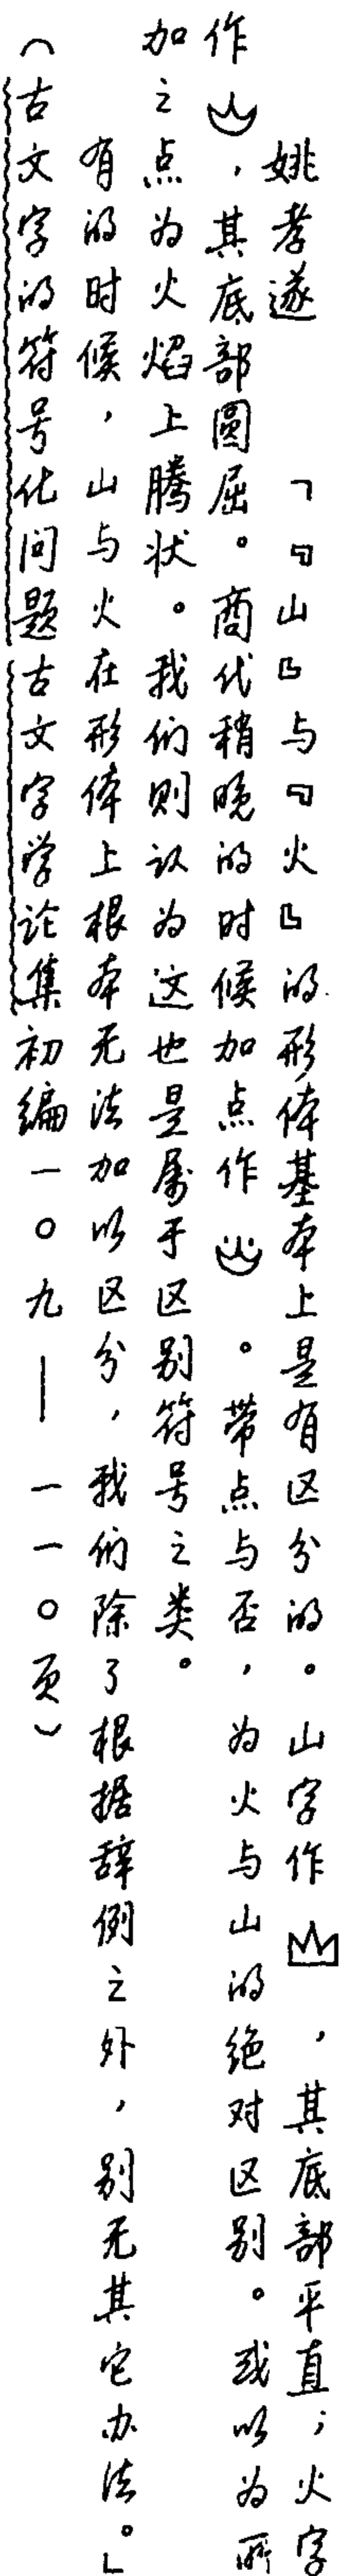 姚孝遂 「『山』与『火』的形体基本上是有区分的。山字作，其底部平直；火字
作，其底部圆屈。商代稍晚的时候加点作。带点与否，为火与山的绝对区别。或以为所
加之点为火焰上腾状。我们则认为这也是属于区别符号之类。
有的时候，山与火在形体上根本无法加以区分，我们除了根据辞例之外，别无其它办法。」
（古文字的符号化问题古文字学论集初编一〇九——一一〇页）